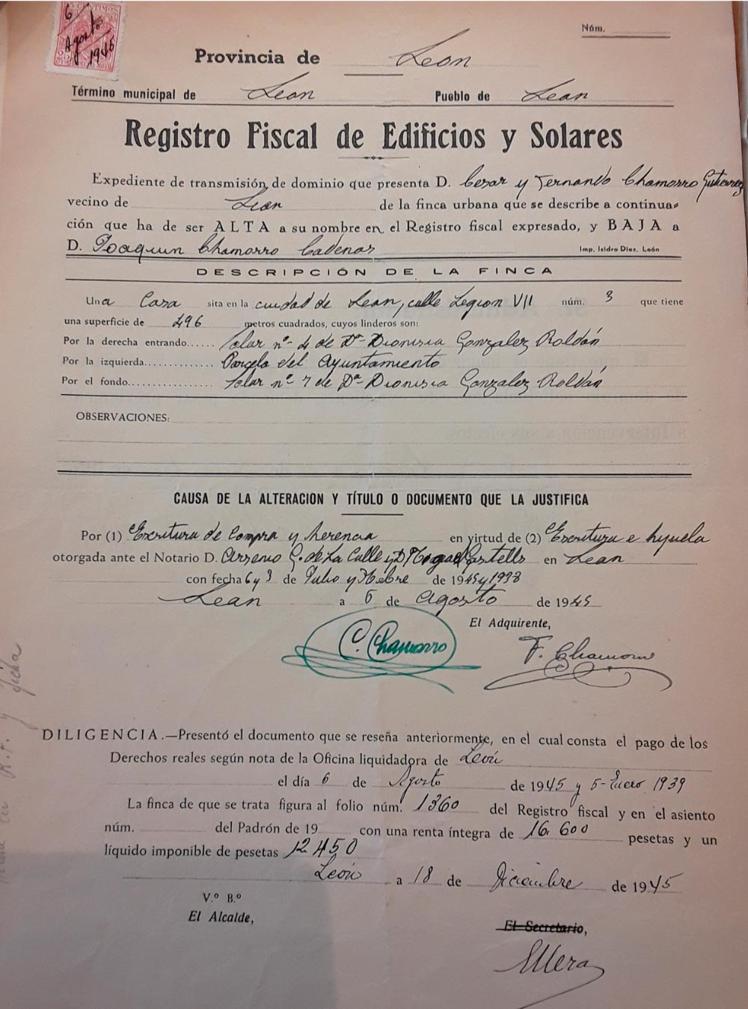 6
Agosto
1945
Núm.
Provincia de León
Término municipal de León Pueblo de León
Registro Fiscal de Edificios y Solares
Expediente de transmisión de dominio que presenta D. Cesar y Fernando Chamorro Gutierrez
vecino de León de la finca urbana que se describe a continua-
ción que ha de ser ALTA a su nombre en el Registro fiscal expresado, y BAJA a
D. Joaquin Chamorro Cadenas Imp. Isidro Diez. León
DESCRIPCIÓN DE LA FINCA
Una Casa sita en la ciudad de León, calle Legion VII núm. 3 que tiene
una superficie de 296 metros cuadrados, cuyos linderos son:
Por la derecha entrando...... Solar nº 4 de Dª Dionisia Gonzalez Roldán
Por la izquierda.............. Parcela del Ayuntamiento
Por el fondo.................. Solar nº 7 de Dª Dionisia Gonzalez Roldán
OBSERVACIONES:
CAUSA DE LA ALTERACION Y TÍTULO O DOCUMENTO QUE LA JUSTIFICA
Por (1) Escritura de Compra y herencia en virtud de (2) Escritura e hijuela
otorgada ante el Notario D. Arsenio G. de La Calle y D. en León
con fecha 6 y 3 de Julio y de 1945 y 1938
León a 6 de Agosto de 1945
El Adquirente,
C. Chamorro F. Chamorro
DILIGENCIA.—Presentó el documento que se reseña anteriormente, en el cual consta el pago de los
Derechos reales según nota de la Oficina liquidadora de León
el día 6 de Agosto de 1945 y 5-Enero 1939
La finca de que se trata figura al folio núm. 1360 del Registro fiscal y en el asiento
núm. del Padrón de 19 con una renta íntegra de 16.600 pesetas y un
líquido imponible de pesetas 12.450
León a 18 de Diciembre de 1945
V.º B.º
El Alcalde,
El Secretario,